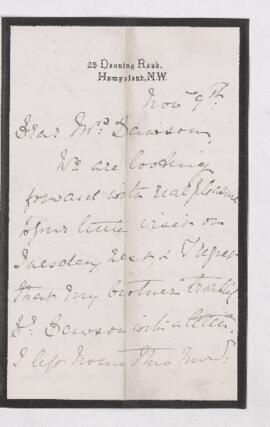 29 Denning Road,
Hampstead, N.W.
Nov 9th.
Dear Mrs Dawson,
We are looking
forward with real pleasure
to your little visit on
Tuesday next & I regret
that my brother
Dr. Dawson with a letter.
I left home this